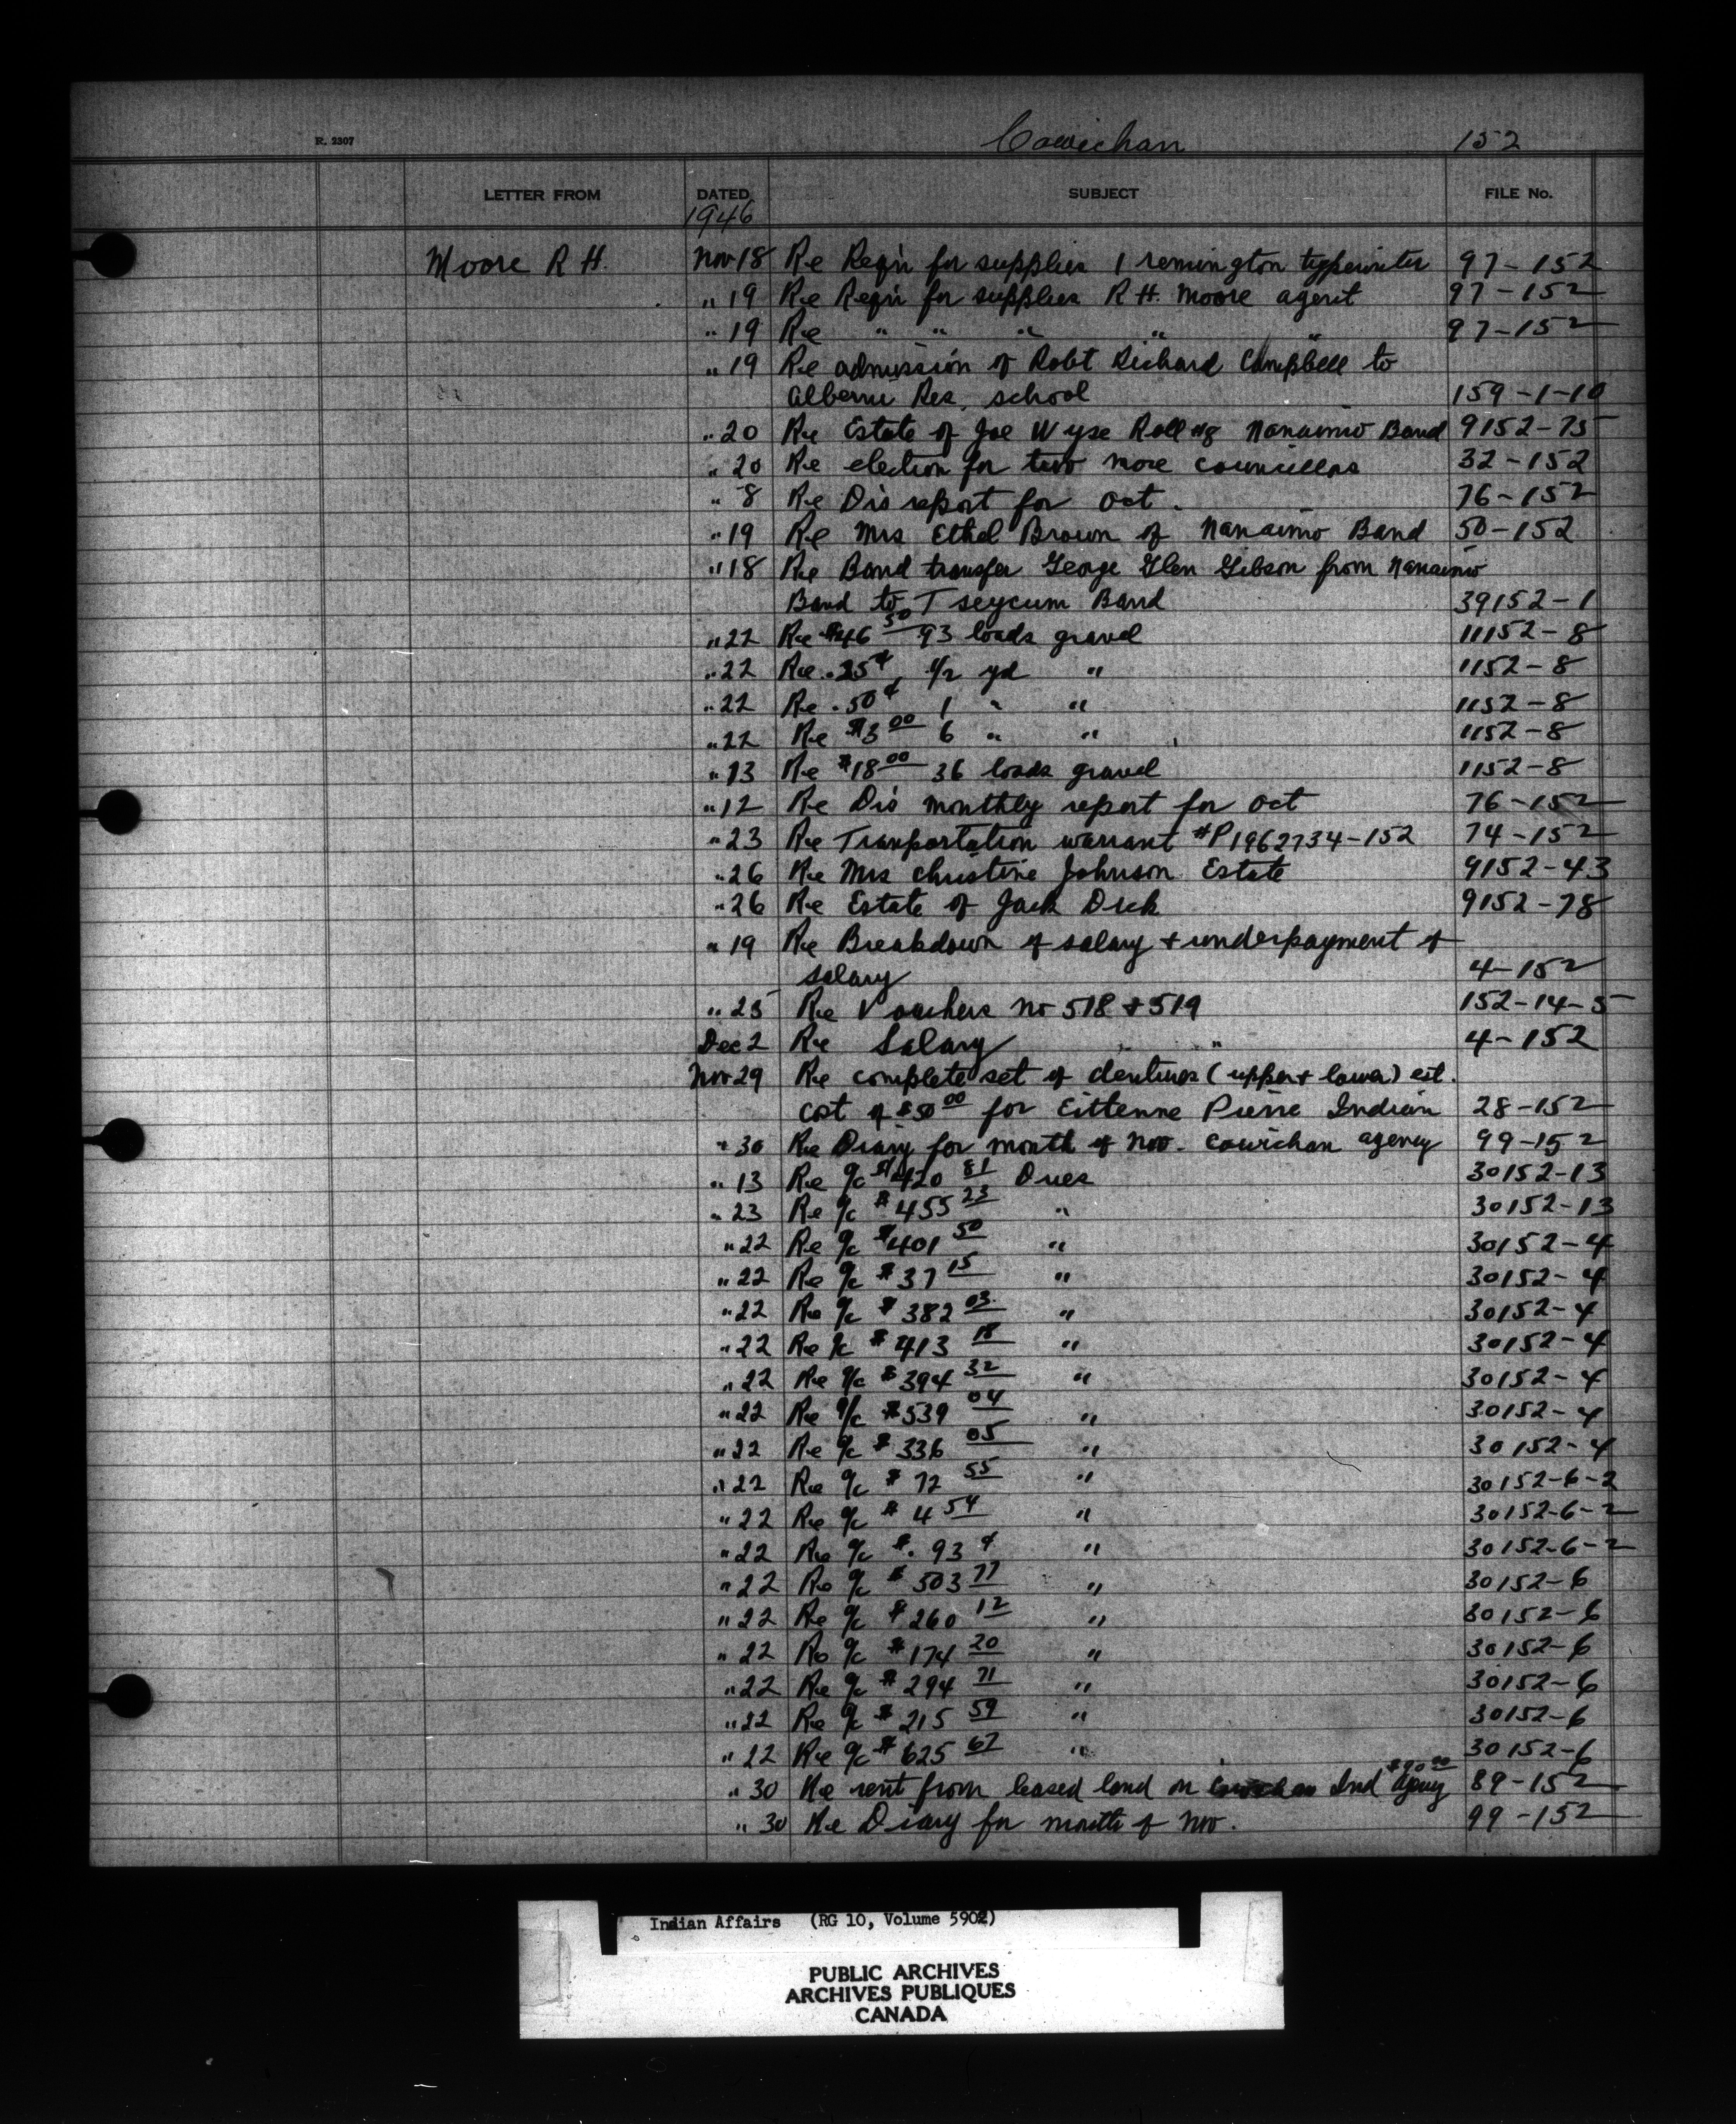 R. 2307
Cowichan 152
LETTER FROM DATED SUBJECT FILE No.
1946
Moore R H. Nov 18 Re Reqn for supplies 1 remington typewriter 97-152
" 19 Re Reqn for supplies R H. Moore agent 97-152
" 19 Re " " " " " 97-152
" 19 Re admission of Robt Richard Campbell to
Alberni Res. school 159-1-10
" 20 Re Estate of Joe Wyse Roll #8 Nanaimo Band 9152-75
" 20 Re election for two more councillors 32-152
" 8 Re Dis report for Oct. 76-152
" 19 Re Mrs Ethel Brown of Nanaimo Band 50-152
" 18 Re Band transfer George Glen Gibson from Nanaimo
Band to Tseycum Band 39152-1
" 22 Re $46 50 93 loads gravel 11152-8
" 22 Re .25¢ 1/2 yd " 1152-8
" 22 Re .50¢ 1 " " 1152-8
" 22 Re $3 00 6 " " 1152-8
" 13 Re $18 00 36 loads gravel 1152-8
" 12 Re Dis monthly report for Oct 76-152
" 23 Re Tranportation warrant #P1962734-152 74-152
" 26 Re Mrs Christine Johnson Estate 9152-43
" 26 Re Estate of Jack Dick 9152-78
" 19 Re Breakdown of salary + underpayment of
salary 4-152
" 25 Re Vouchers no 518 + 519 152-14-5
Dec 2 Re Salary " 4-152
Nov 29 Re complete set of dentures (upper + lower) est.
cost of $50 00 for Eittenne Pierre Indian 28-152
" 30 Re Diary for month of Nov. Cowichan agency 99-152
" 13 Re a/c $420 81 Dues 30152-13
" 23 Re a/c $455 23 " 30152-13
" 22 Re a/c $401 50 " 30152-4
" 22 Re a/c $37 15 " 30152-4
" 22 Re a/c $382 03 " 30152-4
" 22 Re a/c $413 18 " 30152-4
" 22 Re a/c $394 32 " 30152-4
" 22 Re a/c $539 04 " 30152-4
" 22 Re a/c $336 05 " 30152-4
" 22 Re a/c $72 55 " 30152-6-2
" 22 Re a/c $4 54 " 30152-6-2
" 22 Re a/c $.93¢ " 30152-6-2
" 22 Re a/c $503 77 " 30152-6
" 22 Re a/c $260 12 " 30152-6
" 22 Re a/c $174 20 " 30152-6
" 22 Re a/c $294 71 " 30152-6
" 22 Re a/c $215 59 " 30152-6
" 22 Re a/c $625 67 " 30152-6
" 30 Re rent from leased land on Cowichan Ind Agency $90 00 89-152
" 30 Re Diary for month of Nov. 99-152
Indian Affairs (RG 10, Volume 5902)
PUBLIC ARCHIVES
ARCHIVES PUBLIQUES
CANADA